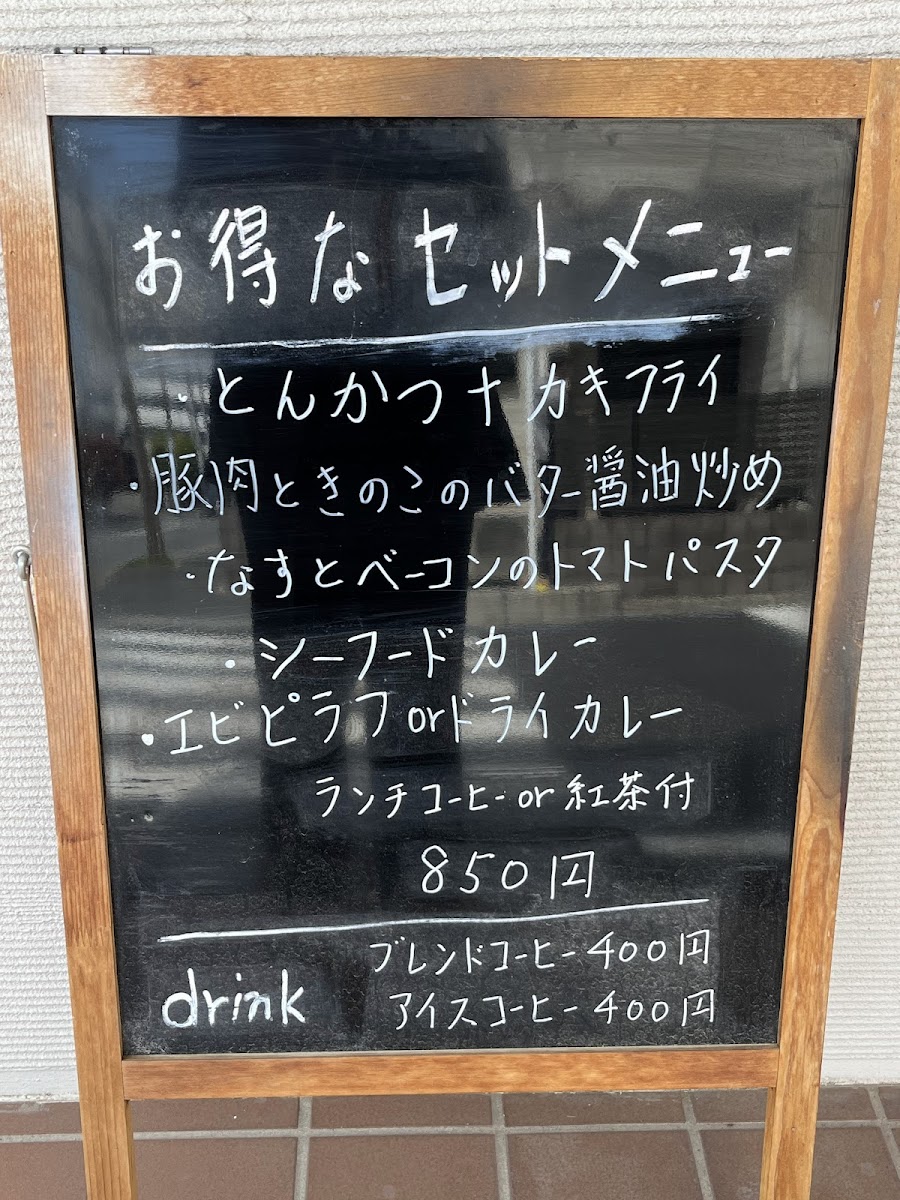 お得なセットメニュー
・とんかつ+カキフライ
・豚肉ときのこのバター醤油炒め
・なすとベーコンのトマトパスタ
・シーフードカレー
・エビピラフorドライカレー
ランチコーヒーor紅茶付
850円
drink
ブレンドコーヒー400円
アイスコーヒー400円